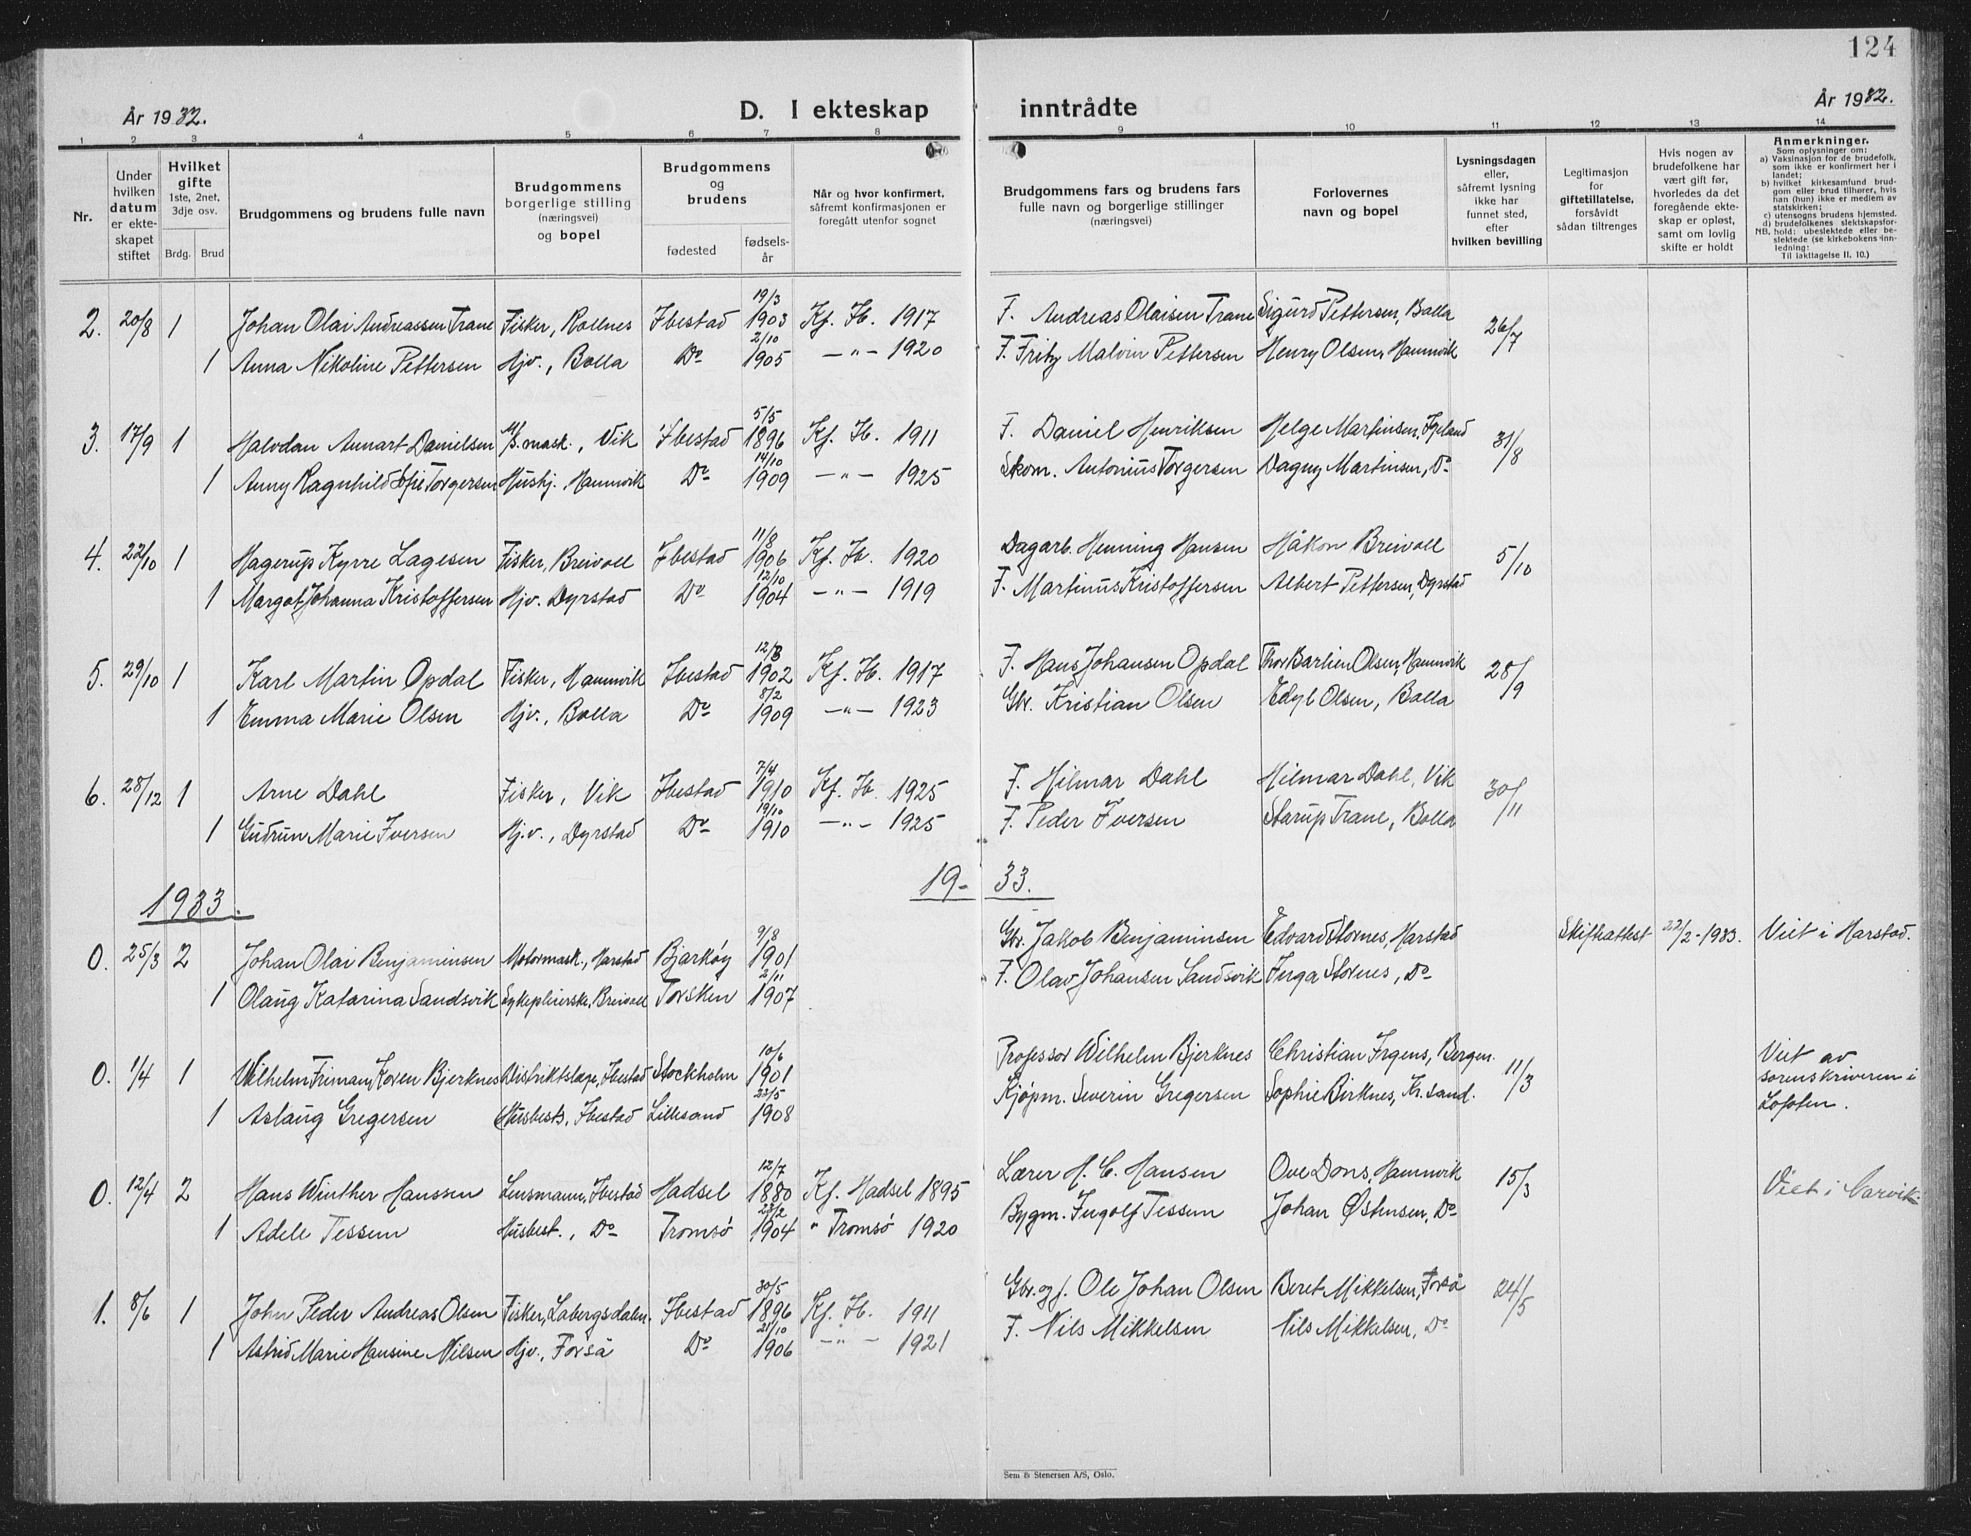 124
År 1932.
D. I ekteskap inntrådte
År 1932.
1 2 3 4 5 6 7 8 9 10 11 12 13 14
Nr.
Under hvilken datum er ekteskapet stiftet
Hvilket gifte 1ste, 2net, 3dje osv.
Brdg. Brud
Brudgommens og brudens fulle navn
Brudgommens borgerlige stilling (næringsvei) og bopel
Brudgommens og brudens
fødested
fødselsår
Når og hvor konfirmert, såfremt konfirmasjonen er foregått utenfor sognet
Brudgommens fars og brudens fars fulle navn og borgerlige stillinger (næringsvei)
Forlovernes navn og bopel
Lysningsdagen eller, såfremt lysning ikke har funnet sted, efter hvilken bevilling
Legitimasjon for giftetillatelse, forsåvidt sådan tiltrenges
Hvis nogen av brudefolkene har vært gift før, hvorledes da det foregående ekteskap er opløst, samt om lovlig skifte er holdt
Anmerkninger.
Som oplysninger om:
a) Vaksinasjon for de brudefolk, som ikke er konfirmert her i landet;
b) hvilket kirkesamfund brudgom eller brud tilhører, hvis han (hun) ikke er medlem av statskirken;
c) utensogns brudens hjemsted.
d) brudefolkenes slektskapsforhold: ubeslektede eller beslektede (se kirkebokens innledning:
NB.
Til iakttagelse II, 10.)
2. 20/8 1 Johan Olai Andreassen Trane Fisker, Rollnes Ibestad 19/3 1903 Kf. Ib. 1917 F. Andreas Olaisen Trane Sigurd Pettersen, Bolla 26/7
1 Anna Nikoline Pettersen Hjv., Bolla Do 2/10 1905 -"- 1920 F. Fritz Malvin Pettersen Henry Olsen, Hamnvik
3. 17/9 1 Halvdan Annart Danielsen M/S. mask., Vik Ibestad 5/5 1896 Kf. Ib. 1911 F. Daniel Henriksen Helge Martinsen, 31/8
1 Anny Ragnhild Sofie Torgersen Hushj., Hamnvik Do 14/10 1909 -"- 1925 Skom. Antonius Torgersen Dagny Martinsen, Do
4. 22/10 1 Hagerup Kyrre Lagesen Fisker, Breivoll Ibestad 11/8 1906 Kf. Ib. 1920 Dagarb. Henning Hansen Håkon Breivoll 5/10
1 Margot Johanna Kristoffersen Hjv. Dyrstad Do 12/10 1904 -"- 1919 F. Martinus Kristoffersen Albert Pettersen, Dyrstad
5. 29/10 1 Karl Martin Opdal Fisker, Hamnvik Ibestad 12/8 1902 Kf. Ib. 1917 F. Hans Johansen Opdal Thor Barlien Olsen, Hamnvik 28/9
1 Emma Marie Olsen Hjv., Bolla Do 8/2 1909 -"- 1923 Gbr. Kristian Olsen Olsen, Bolla
6. 28/12 1 Arne Dahl Fisker, Vik Ibestad 7/4 1910 Kf. Ib. 1925 F. Hilmar Dahl Hilmar Dahl, Vik 30/11
1 Gudrun Marie Iversen Hj.v., Dyrstad Do 19/10 1910 -"- 1925 F. Peder Iversen Starup Trane, Bolla
1933. 19-33.
0. 25/3 2 Johan Olai Benjaminsen Motormask., Harstad Bjarkøy 9/8 1901 Gbr. Jakob Benjaminsen Edvard Stornes, Harstad Skifteattest 22/2-1933. Viet i Harstad.
1 Olaug Katarina Sandsvik Sykepleierske, Breivoll Torsken 2/11 1907 F. Olav Johansen Sandsvik Inga Stornes, Do
0. 1/4 1 Vilhelm Friman Koren Bjerknes Distriktslæge, Ibestad Stockholm 10/6 1901 Professor Vilhelm Bjerknes Christian Irgens, Bergen. 11/3 Viet av sorenskriveren i Lofoten.
1 Aslaug Gregersen Husbest., Ibestad Lillesand 22/5 1908 Kjøpm. Severin Gregersen Sophie Birknes, Kr. sand.
0. 12/4 2 Hans Winther Hanssen Lensmann, Ibestad Hadsel 12/7 1880 Kf. Hadsel 1895 Lærer H. C. Hansen Ove Dons, Hamnvik 15/3 Viet i Narvik
1 Adele Tessem Husbest., Do Tromsø 23/2 1904 " Tromsø 1920 Bygm. Ingolf Tessem Johan Østensen, Do
1. 8/6 1 John Peder Andreas Olsen Fisker, Labergsdalen. Ibestad 30/5 1896 Kf. Ib. 1911 Gbr. og f. Ole Johan Olsen Beret Mikkelsen, Forså 24/5
1 Astrid Marie Hansine Nilsen Hjv., Forså Do 21/10 1906 -"- 1921 F. Nils Mikkelsen Nils Mikkelsen, Do
Sem & Stenersen A/S, Oslo.